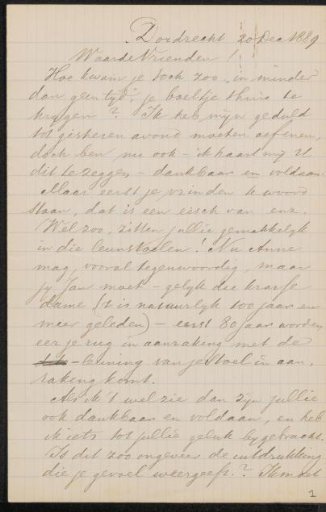 Dordrecht 20 Dec 1889
Waarde Vrienden!
Hoe kwam je toch zoo in minder
dan geen tijd je boeltje thuis te
krijgen? Ik heb mijn geduld
tot gisteren avond moeten oefenen,
doch ben nu ook – ik haast mij U
dit te zeggen – dankbaar en voldaan
Maar eerst je vrinden te woord
staan, dat is een eisch van enz.
Wel zoo, zitten jullie gemakkelijk
in die leunstoelen! Nu Anna
mag, vooral tegenwoordig, maar
jy Jan moet – gelijk die kranige
dame (t is natuurlijk 100 jaar en
meer geleden) – eerst 80 jaar worden
eer je rug in aanraking met de
leuning van je stoel in aan
raking komt.
Als ik 't wel zie dan zijn jullie
ook dankbaar en voldaan, en heb
ik iets tot jullie geluk bygebracht.
Is dit zoo ongeveer de uitdrukking
die je gevoel weergeeft?
1